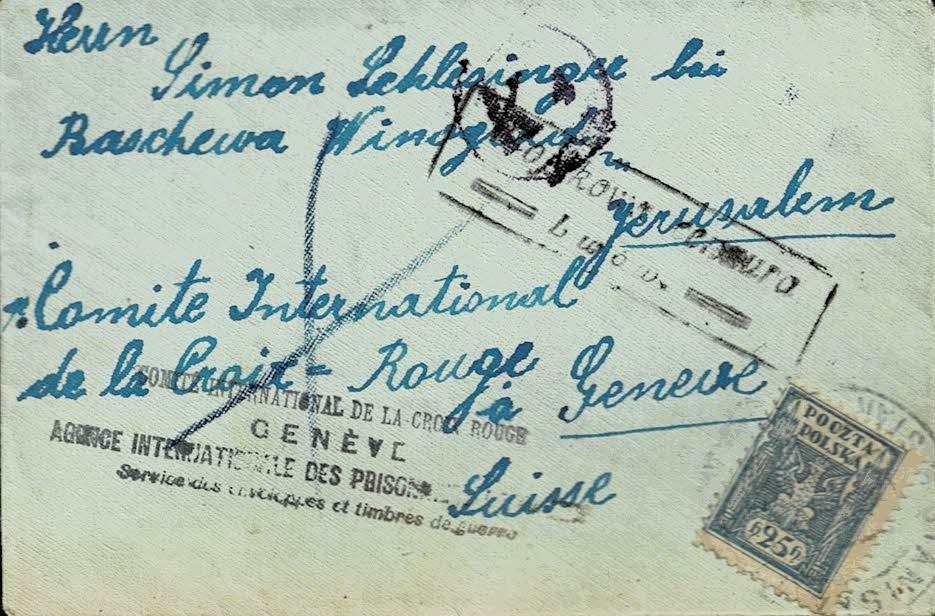 Herrn
Simon Schlesinger bei
Raschewa Winograd
Jerusalem
Lwów.
Comite International
de la Croix-Rouge
à Geneve
Suisse
COMITÉ INTERNATIONAL DE LA CROIX ROUGE
GENÈVE
AGENCE INTERNATIONALE DES PRISONN
Service des enveloppes et timbres de guerre
POCZTA
POLSKA
25